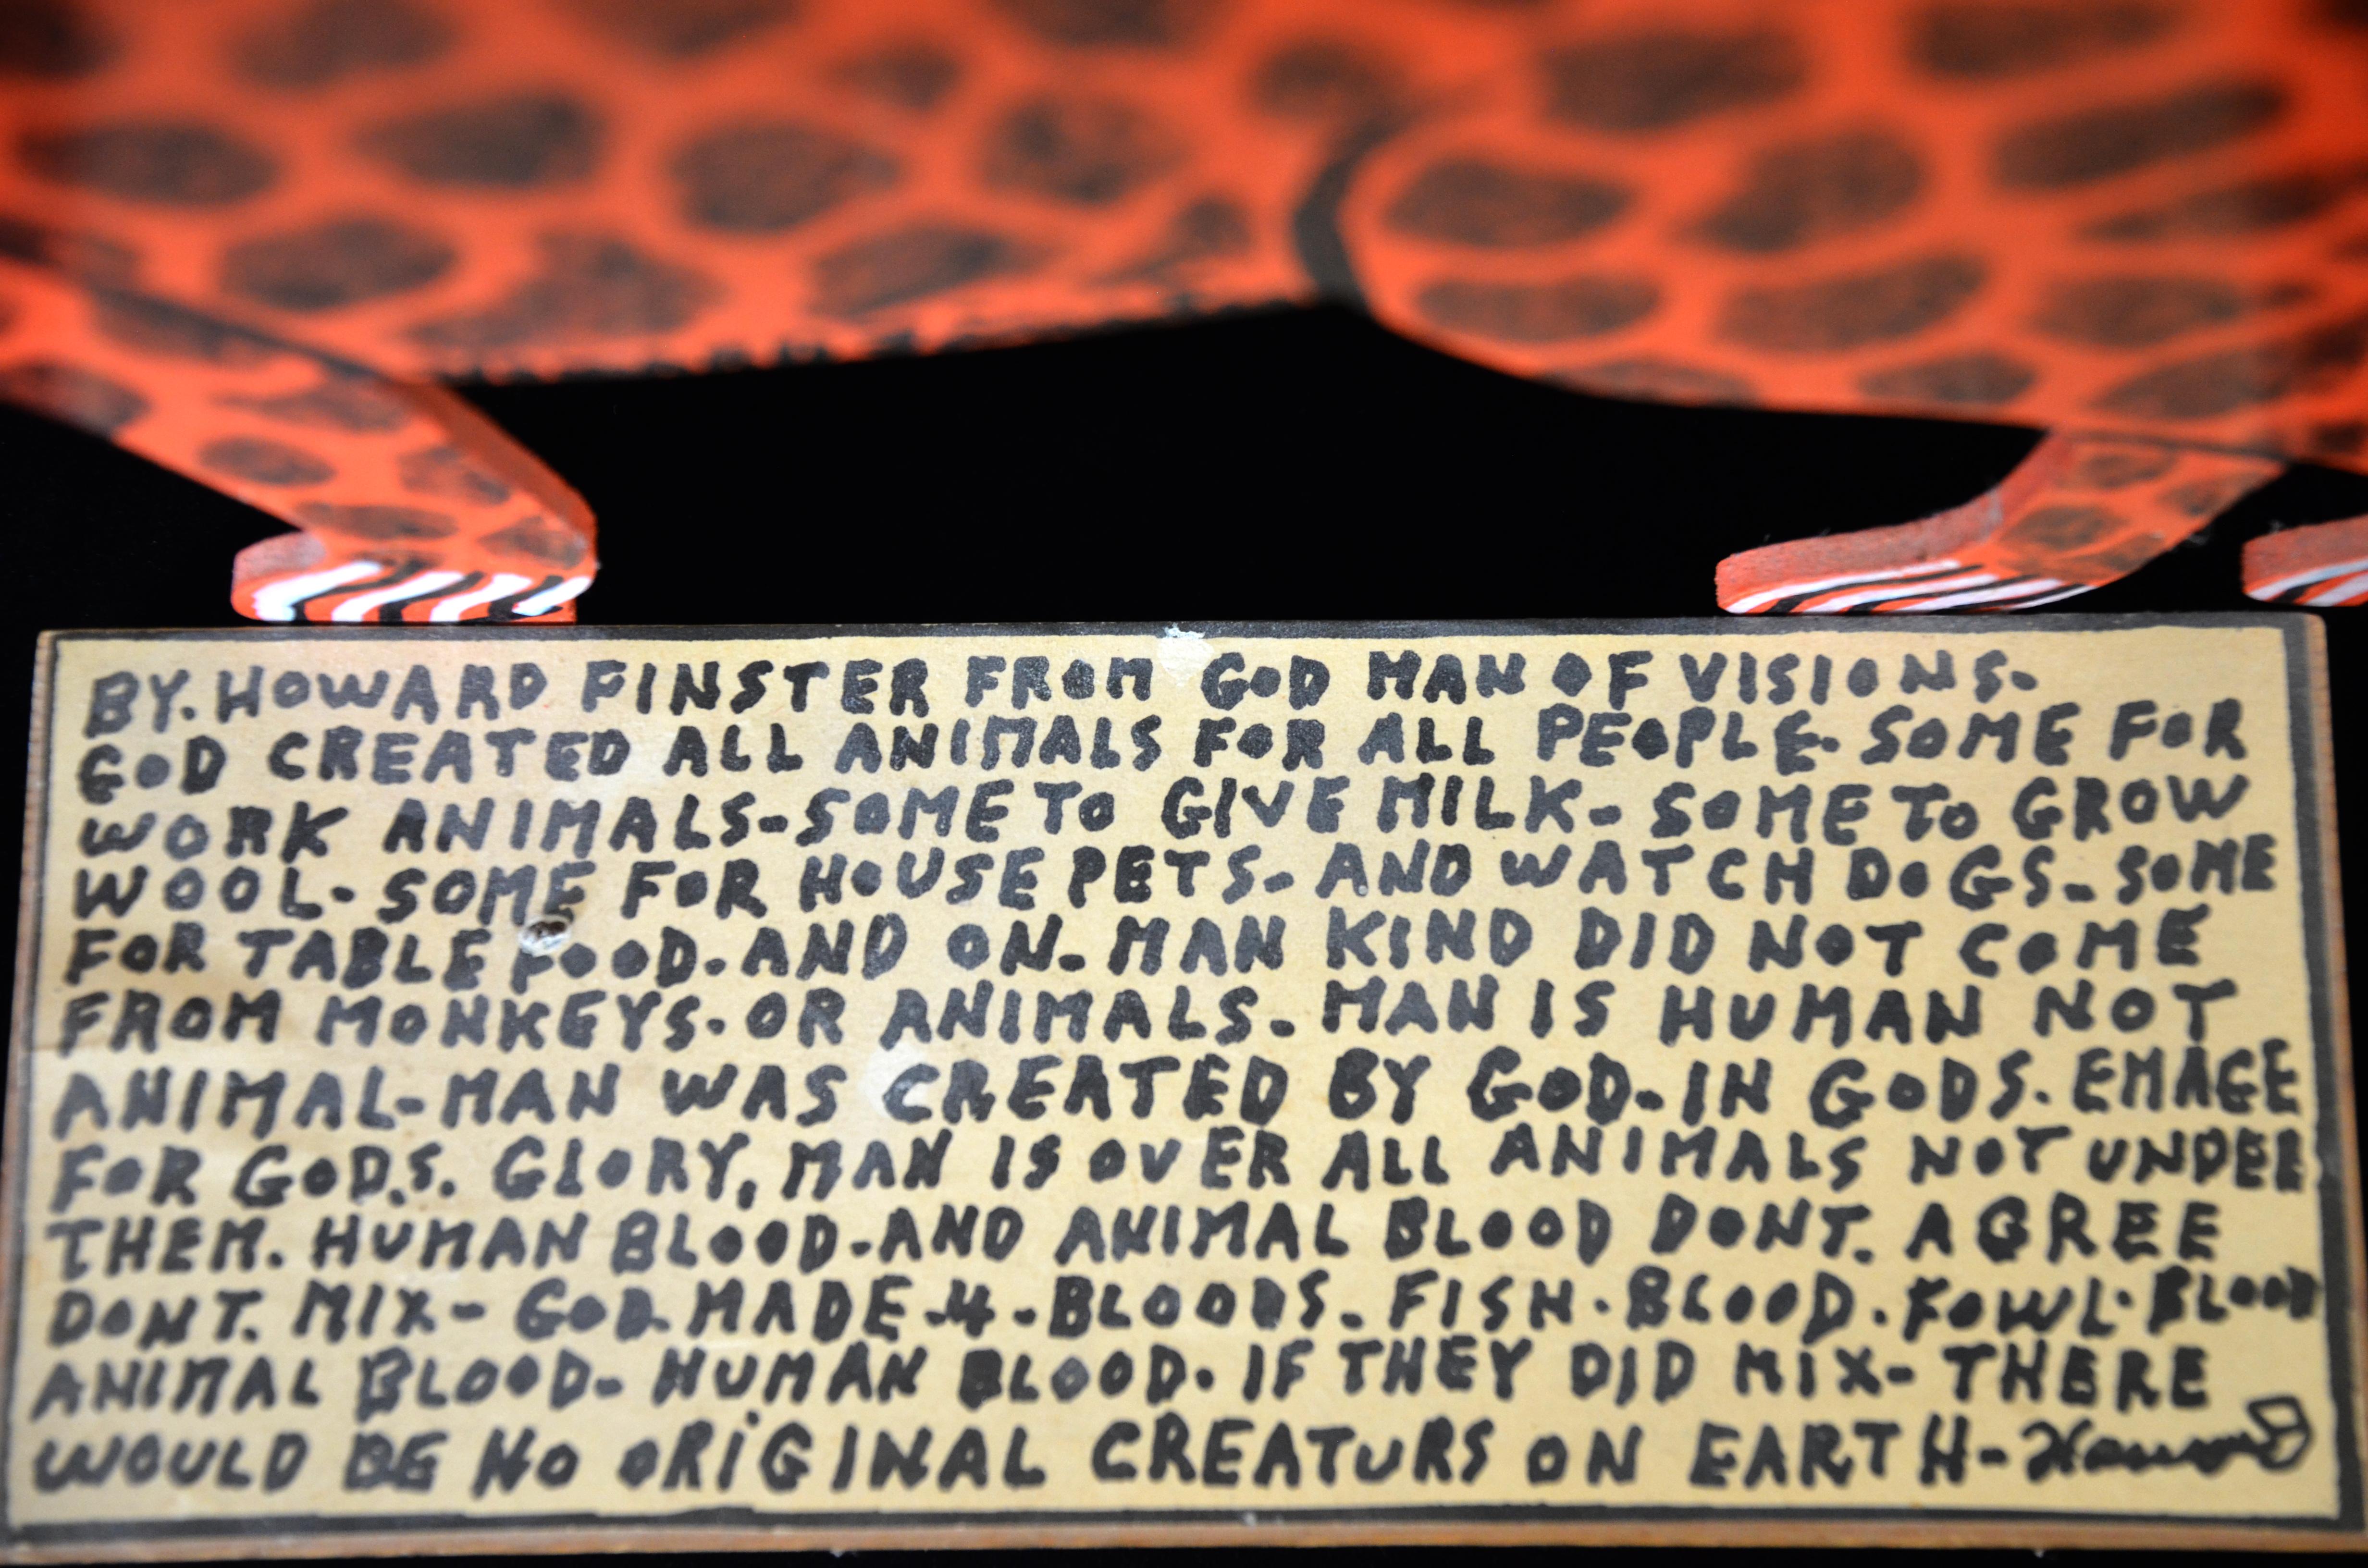 BY. HOWARD FINSTER FROM GOD MAN OF VISIONS.
GOD CREATED ALL ANIMALS FOR ALL PEOPLE. SOME FOR
WORK ANIMALS-SOME TO GIVE MILK- SOME TO GROW
WOOL. SOME FOR HOUSE PETS- AND WATCH DOGS- SOME
FOR TABLE FOOD. AND ON. MAN KIND DID NOT COME
FROM MONKEYS. OR ANIMALS. MAN IS HUMAN NOT
ANIMAL-MAN WAS CREATED BY GOD. IN GODS. EMAGE
FOR GOD,S. GLORY, MAN IS OVER ALL ANIMALS NOT UNDER
THEM. HUMAN BLOOD. AND ANIMAL BLOOD DONT. AGREE
DONT. MIX- GOD. MADE-4-BLOODS. FISH. BLOOD. FOWL. BLOOD
ANIMAL BLOOD- HUMAN BLOOD. IF THEY DID MIX- THERE
WOULD BE NO ORIGINAL CREATURS ON EARTH- Howard